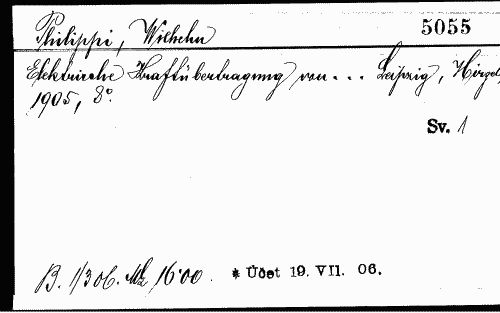 Philippi, Wilhelm 5055
Elektrische Kraftübertragung von ... Leipzig, Hirzel,
1905, 8°.
Sv. 1
B. 1/3 06. Mk 16·00. * Účet 19. VII. 06.